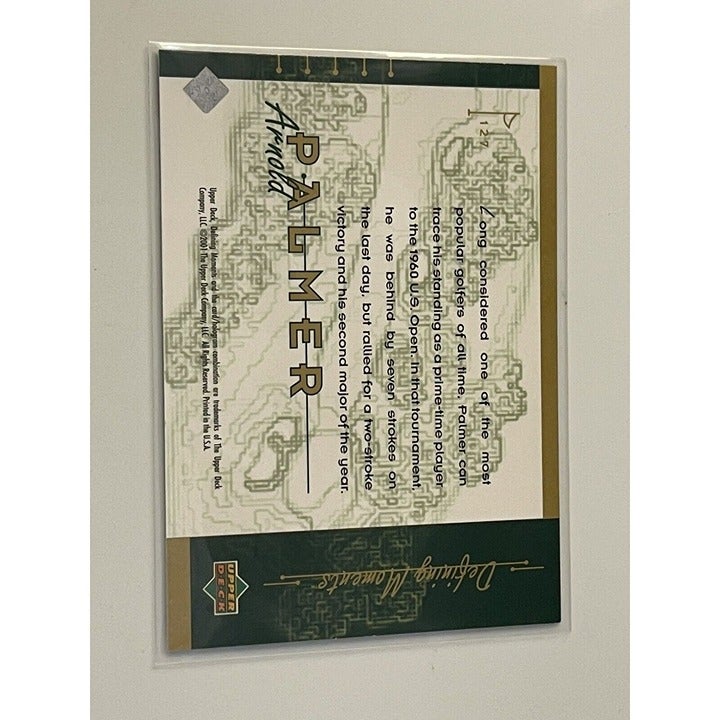 127
Long considered one of the most
popular golfers of all-time, Palmer can
trace his standing as a prime-time player
to the 1960 U.S. Open. In that tournament,
he was behind by seven strokes on
the last day, but rallied for a two-stroke
victory and his second major of the year.
PALMER
Arnold
Upper Deck, Defining Moments and the card/hologram combination are trademarks of The Upper Deck
Company, LLC ©2001 The Upper Deck Company, LLC. All Rights Reserved. Printed in the U.S.A.
Defining Moments
UPPER
DECK